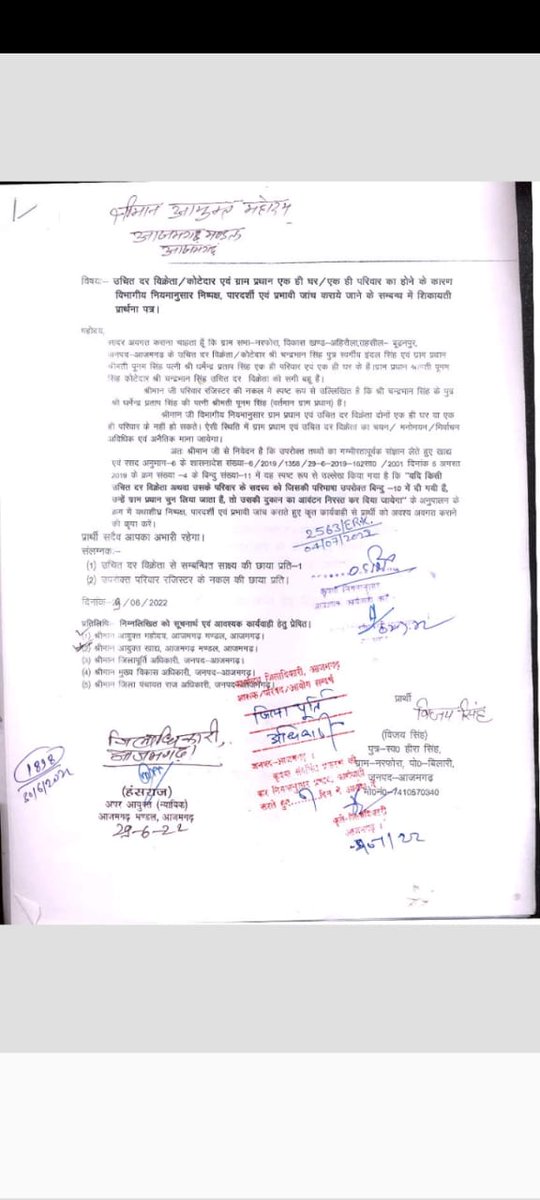 श्रीमान आयुक्त महोदय
आजमगढ़ मण्डल
आजमगढ़
विषयः– उचित दर विक्रेता/कोटेदार एवं ग्राम प्रधान एक ही घर/एक ही परिवार का होने के कारण
विभागीय नियमानुसार निष्पक्ष, पारदर्शी एवं प्रभावी जांच कराये जाने के सम्बन्ध में शिकायती
प्रार्थना पत्र।
महोदय,
सादर अवगत कराना चाहता हूँ कि ग्राम सभा-नरफोरा, विकास खण्ड-अहिरौला,तहसील- बूढ़नपुर,
जनपद-आजमगढ़ के उचित दर विक्रेता/कोटेदार श्री चन्द्रभान सिंह पुत्र स्वर्गीय इंदल सिंह एवं ग्राम प्रधान
श्रीमती पूनम सिंह पत्नी श्री धर्मेन्द्र प्रताप सिंह एक ही परिवार एवं एक ही घर के हैं।ग्राम प्रधान श्रीमती पूनम
सिंह कोटेदार श्री चन्द्रभान सिंह उचित दर विक्रेता की सगी बहू हैं।
श्रीमान जी परिवार रजिस्टर की नकल मे स्पष्ट रूप से उल्लिखित है कि श्री चन्द्रभान सिंह के पुत्र
श्री धर्मेन्द्र प्रताप सिंह की पत्नी श्रीमती पूनम सिंह (वर्तमान ग्राम प्रधान) हैं।
श्रीमान जी विभागीय नियमानुसार ग्राम प्रधान एवं उचित दर विक्रेता दोनों एक ही घर या एक
ही परिवार के नही हो सकते। ऐसी स्थिति में ग्राम प्रधान एवं उचित दर विक्रेता का चयन/ मनोनयन/निर्वाचन
अविधिक एवं अनैतिक माना जायेगा।
अतः श्रीमान जी से निवेदन है कि उपरोक्त तथ्यों का गम्भीरतापूर्वक संज्ञान लेते हुए खाद्य
एवं रसद अनुभाग-6 के शासनादेश संख्या-6/2019/1358/29-6-2019-162सा0 /2001 दिनांक 5 अगस्त
2019 के क्रम संख्या -4 के बिन्दु संख्या-11 में यह स्पष्ट रूप से उल्लेख किया गया है कि "यदि किसी
उचित दर विक्रेता अथवा उसके परिवार के सदस्य को जिसकी परिभाषा उपरोक्त बिन्दु -10 में दी गयी है,
उन्हें ग्राम प्रधान चुन लिया जाता है, तो उसकी दुकान का आवंटन निरस्त कर दिया जायेगा" के अनुपालन के
क्रम में यथाशीघ्र निष्पक्ष, पारदर्शी एवं प्रभावी जांच कराते हुए कृत कार्यवाही से प्रार्थी को अवश्य अवगत कराने
की कृपा करें।
प्रार्थी सदैव आपका आभारी रहेगा।
2563/ERK
04/07/2022
संलग्नक:–
(1) उचित दर विक्रेता से सम्बन्धित साक्ष्य की छाया प्रति-1
(2) उपरोक्त परिवार रजिस्टर के नकल की छाया प्रति।
दिनांक- /06/2022
प्रतिलिपिः– निम्नलिखित को सूचनार्थ एवं आवश्यक कार्यवाही हेतु प्रेषित।
(1) श्रीमान आयुक्त महोदय, आजमगढ़ मण्डल, आजमगढ़।
(2) श्रीमान आयुक्त खाद्य, आजमगढ़ मण्डल, आजमगढ़।
(3) श्रीमान जिलापूर्ति अधिकारी, जनपद-आजमगढ़।
(4) श्रीमान मुख्य विकास अधिकारी, जनपद-आजमगढ़।
(5) श्रीमान जिला पंचायत राज अधिकारी, जनपद-आजमगढ़।
जिलाधिकारी, आजमगढ़
जिला पूर्ति
अधिकारी
जनपद-आजमगढ़।
प्रार्थी
विजय सिंह
(विजय सिंह)
पुत्र-स्व0 हीरा सिंह,
ग्राम-नरफोरा, पो0-बिलारी,
जुनपद-आजमगढ़
मो0नं0-7410570340
जिलाधिकारी,
आजमगढ़।
(हंसराज)
अपर आयुक्त (न्यायिक)
आजमगढ़ मण्डल, आजमगढ़
29-6-22
1898
30/6/22